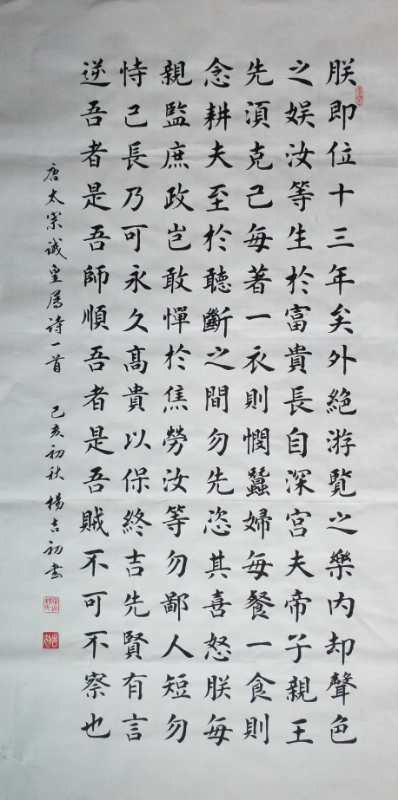 朕即位十三年矣外絶游覽之樂内却聲色
之娱汝等生於富貴長自深宫夫帝子親王
先須克己每著一衣則憫蠶婦每餐一食則
念耕夫至於聽斷之間勿先恣其喜怒朕每
親監庶政豈敢憚於焦勞汝等勿鄙人短勿
恃己長乃可永久髙貴以保終吉先賢有言
逆吾者是吾師順吾者是吾賊不可不察也
唐太宗诫皇属诗一首 己亥初秋 楊吉初书